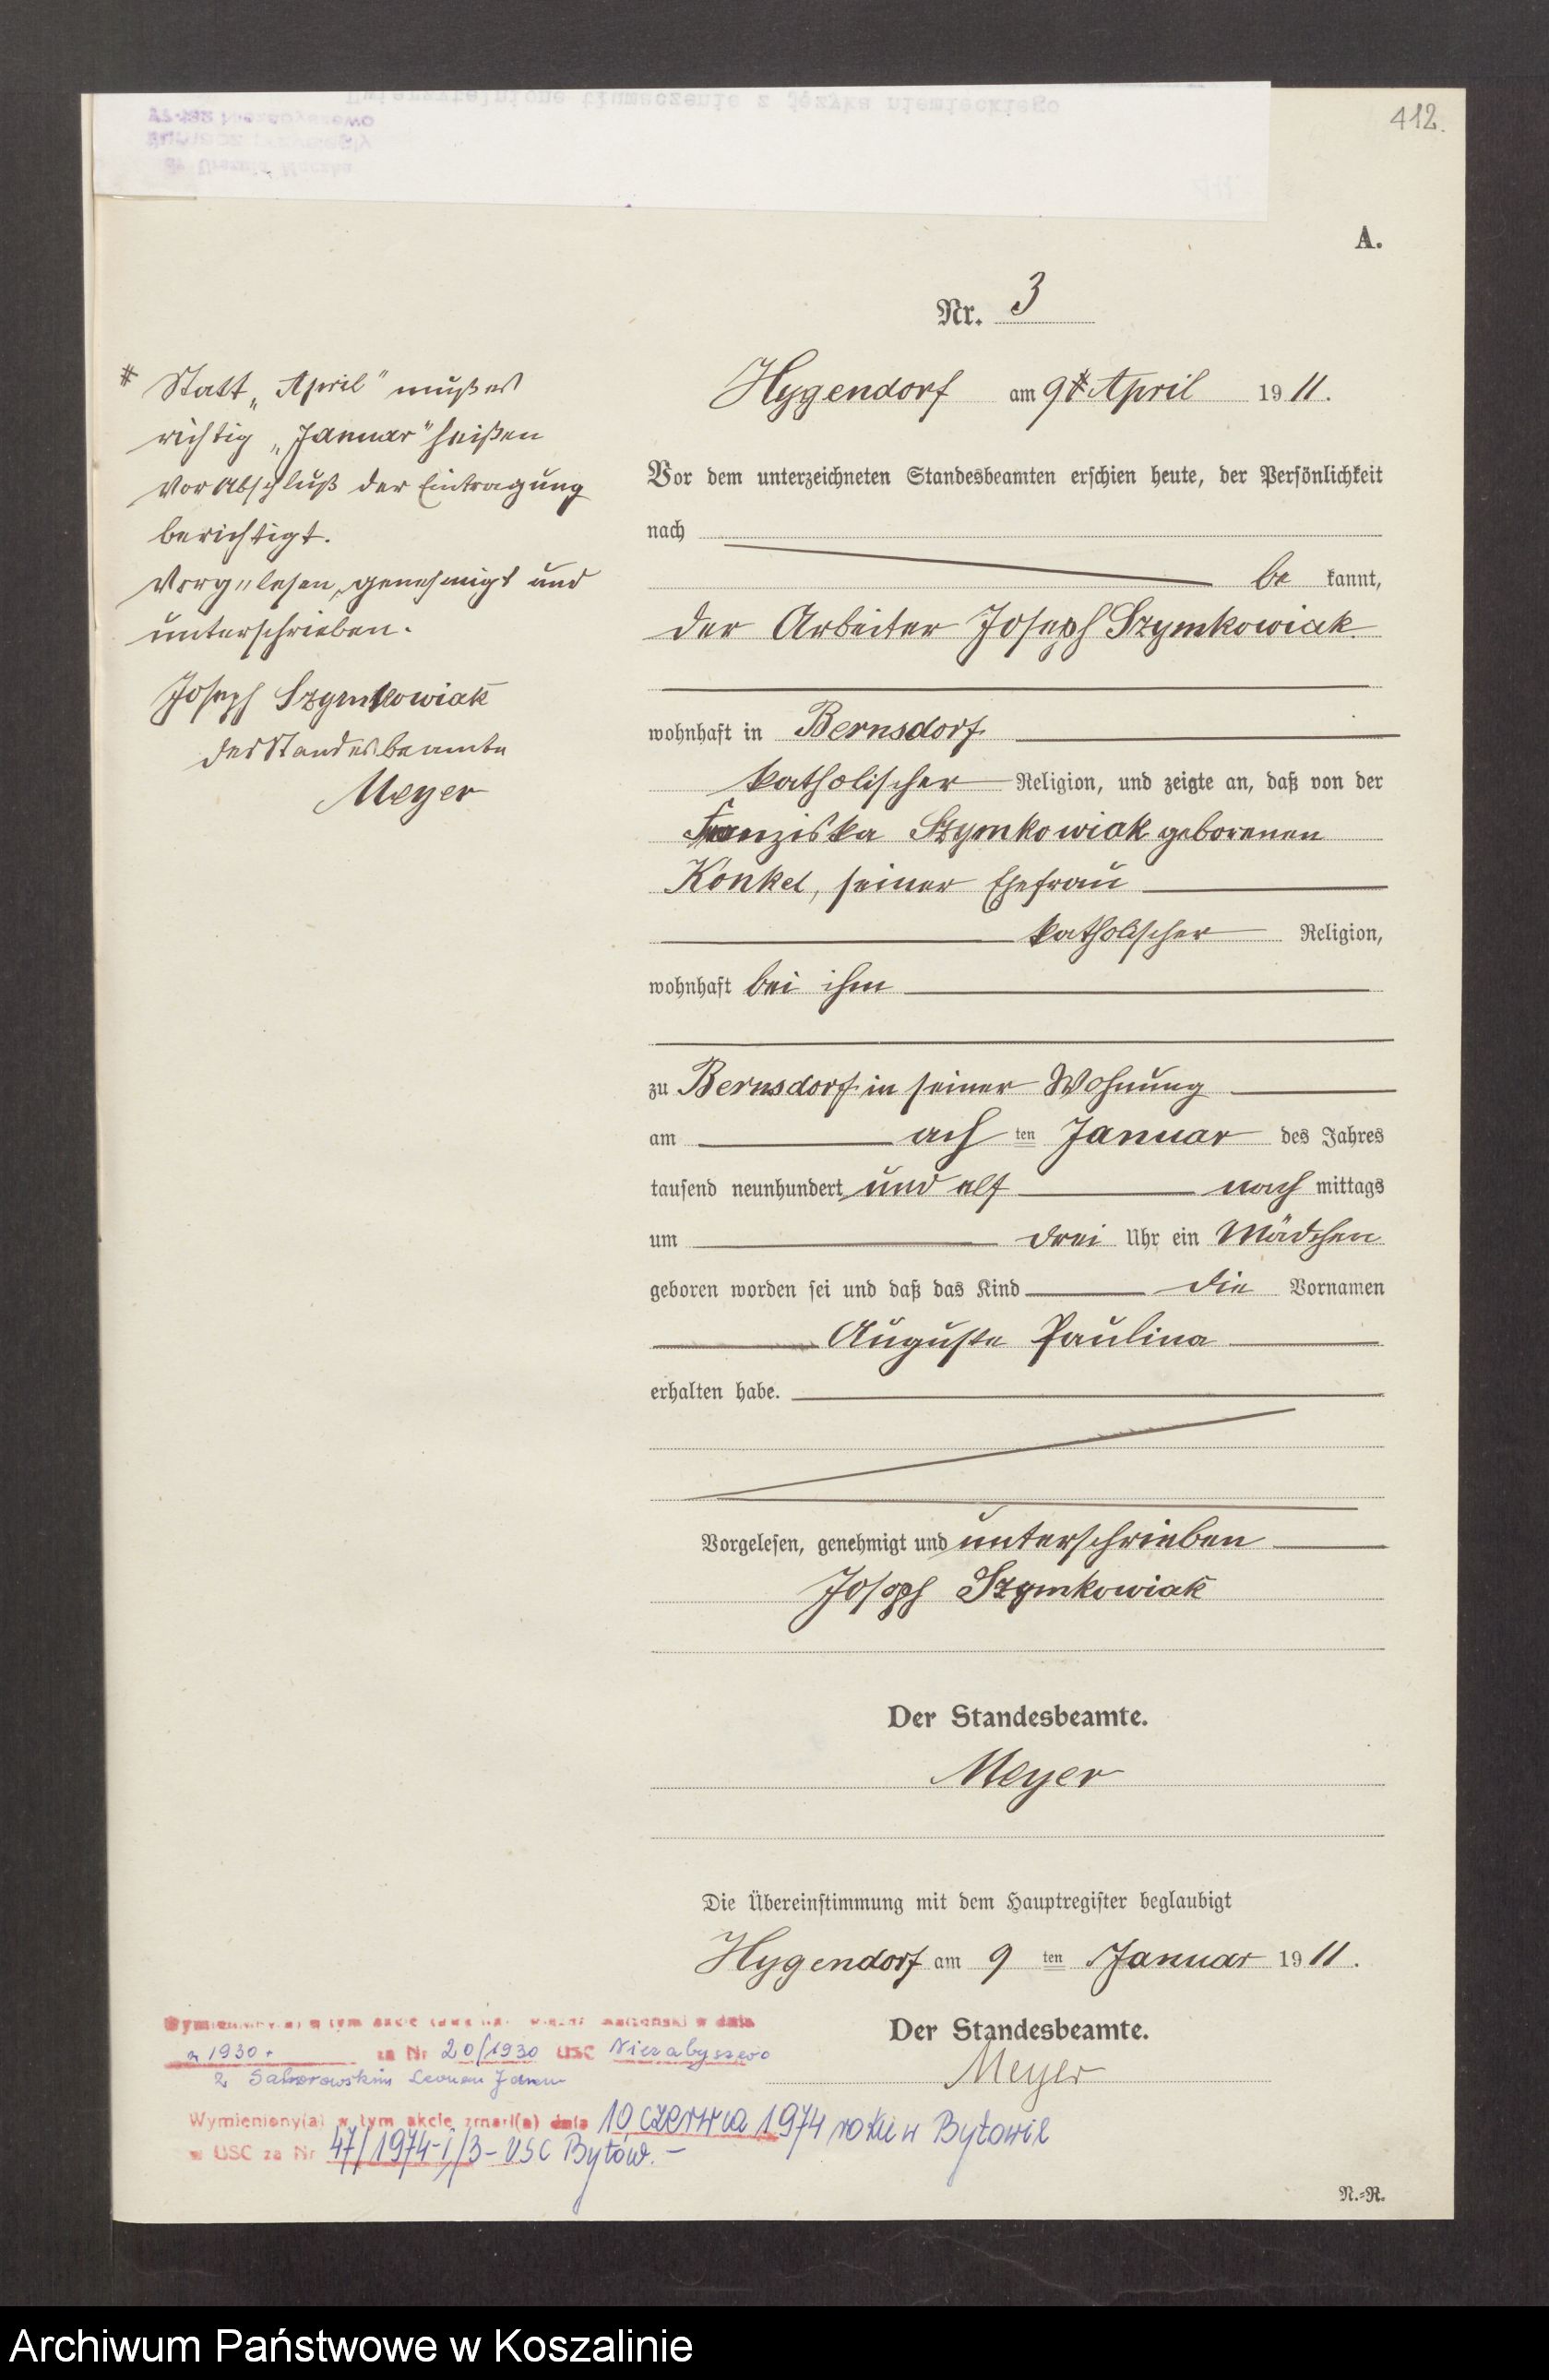 412.
A.
Nr. 3
Hygendorf am 9 # April 1911.
Vor dem unterzeichneten Standesbeamten erschien heute, der Persönlichkeit
nach
be kannt,
der Arbeiter Joseph Szymkowiak
wohnhaft in Bernsdorf
katholischer Religion, und zeigte an, daß von der
Franziska Szymkowiak geborenen
Konkel, seiner Ehefrau
katholischer Religion,
wohnhaft bei ihm
zu Bernsdorf in seiner Wohnung
am ach ten Januar des Jahres
tausend neunhundert und elf nach mittags
um drei Uhr ein Mädchen
geboren worden sei und daß das Kind die Vornamen
Auguste Paulina
erhalten habe.
Vorgelesen, genehmigt und unterschrieben
Joseph Szymkowiak
Der Standesbeamte.
Meyer
Die Übereinstimmung mit dem Hauptregister beglaubigt
Hygendorf am 9 ten Januar 1911.
Der Standesbeamte.
Meyer
N.=R.
# Statt „April" muß es
richtig „Januar" heißen
vor Abschluß der Eintragung
berichtigt.
Vorgelesen, genehmigt und
unterschrieben.
Joseph Szymkowiak
der Standesbeamte
Meyer
w tym akcie w dnia
1930 za Nr 20/1930 USC Niezabyszewo
z
Wymieniony(a) w tym akcie zmarł(a) dnia 10 czerwca 1974 roku w Bytowie
w USC za Nr 47/1974-I/3 - USC Bytów. -
Archiwum Państwowe w Koszalinie